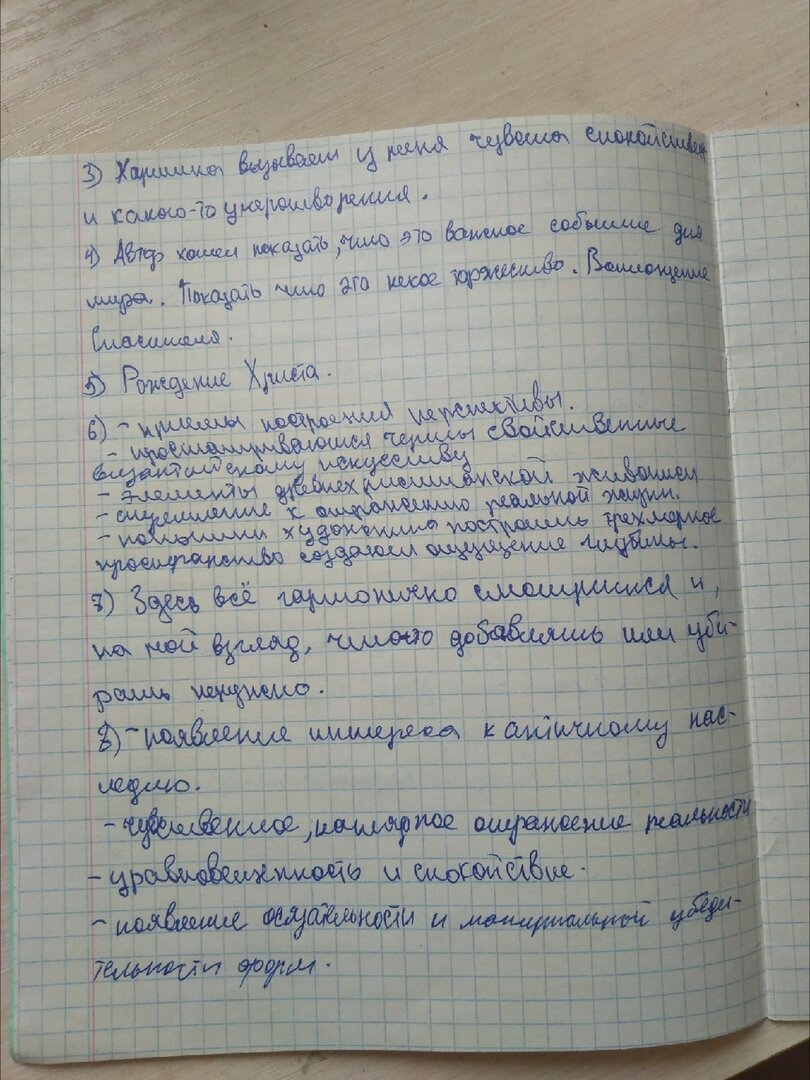 3) Картина вызывает у меня чувства спокойствия
и какого-то умиротворения.
4) Автор хотел показать, что это важное событие для
мира. Показать что это некое торжество. Воплощение
Спасителя.
5) Рождение Христа.
6) - приемы построения перспективы.
- просматриваются черты свойственные
византийскому искусству
- элементы древнехристианской живописи
- стремление к отражению реальной жизни.
- попытки художника построить трехмерное
пространство создают ощущение глубины.
7) Здесь всё гармонично смотрится и,
на мой взгляд, что-то добавлять или уби-
рать ненужно.
8) - появление интереса к античному нас-
ледию.
- чувственное, наглядное отражение реальности
- уравновешенность и спокойствие.
- появление осязательности и материальной убеди-
тельности форм.